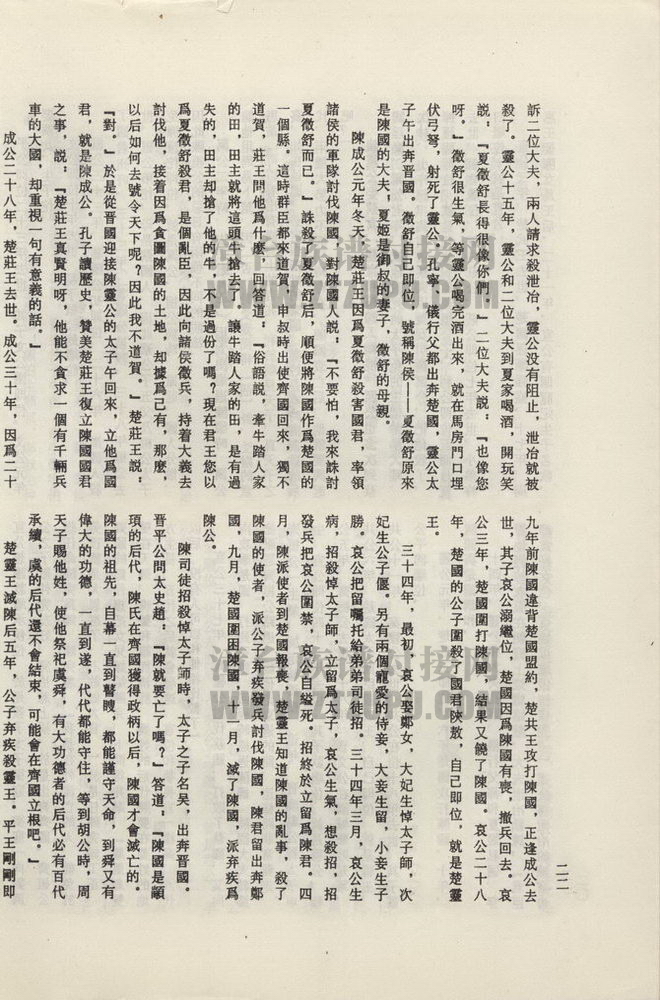 訴二位大夫，兩人請求殺泄冶，靈公没有阻止，泄冶就被
殺了。靈公十五年，靈公和二位大夫到夏家喝酒，開玩笑
説：『夏徵舒長得很像你們。』二位大夫説：『也像您
呀。』徵舒很生氣，等靈公喝完酒出來，就在馬房門口埋
伏弓弩，射死了靈公。孔寧、儀行父都出奔楚國，靈公太
子午出奔晉國。徵舒自己即位，號稱陳侯——夏徵舒原來
是陳國的大夫，夏姬是御叔的妻子，徵舒的母親。
陳成公元年冬天，楚莊王因爲夏徵舒殺害國君，率領
諸侯的軍隊討伐陳國，對陳國人説：『不要怕，我來誅討
夏徵舒而已。』誅殺了夏徵舒后，順便將陳國作爲楚國的
一個縣。這時群臣都來道賀，申叔時出使齊國回來，獨不
道賀，莊王問他爲什麽，回答道：『俗語説，牽牛踏人家
的田，田主就將這頭牛搶去了，讓牛踏人家的田，是有過
失的，田主却搶了他的牛，不是過份了嗎？現在君王您以
爲夏徵舒殺君，是個亂臣，因此向諸侯徵兵，持着大義去
討伐他，接着因爲貪圖陳國的土地，却據爲己有，那麽，
以后如何去號令天下呢？因此我不道賀。』楚莊王説：
『對。』於是從晉國迎接陳靈公的太子午回來，立他爲國
君，就是陳成公。孔子讀歷史，贊美楚莊王復立陳國國君
之事，説：『楚莊王真賢明呀，他能不貪求一個有千輛兵
車的大國，却重視一句有意義的話。』
成公二十八年，楚莊王去世。成公三十年，因爲二十
九年前陳國違背楚國盟約，楚共王攻打陳國，正逢成公去
世，其子哀公溺繼位，楚國因爲陳國有喪，撤兵回去。哀
公三年，楚國圍打陳國，結果又饒了陳國。哀公二十八
年，楚國的公子圍殺了國君陝敖，自己即位，就是楚靈
王。
三十四年，最初，哀公娶鄭女，大妃生悼太子師，次
妃生公子偃。另有兩個寵愛的侍妾，大妾生留，小妾生子
勝。哀公把留囑托給弟弟司徒招。三十四年三月，哀公生
病，招殺悼太子師，立留爲太子，哀公生氣，想殺招，招
發兵把哀公圍禁，哀公自縊死。招終於立留爲陳君。四
月，陳派使者到楚國報喪，楚靈王知道陳國的亂事，殺了
陳國的使者，派公子弃疾發兵討伐陳國，陳君留出奔鄭
國，九月，楚國圍困陳國，十一月，滅了陳國，派弃疾爲
陳公。
陳司徒招殺悼太子師時，太子之子名吴，出奔晉國。
晉平公問太史趙：『陳就要亡了嗎？』答道：『陳國是顓
頊的后代，陳氏在齊國獲得政柄以后，陳國才會滅亡的。
陳國的祖先，自幕一直到瞽瞍，都能謹守天命，到舜又有
偉大的功德，一直到遂，代代都能守住，等到胡公時，周
天子賜他姓，使他祭祀虞舜，有大功德者的后代必有百代
承續，虞的后代還不會結束，可能會在齊國立根吧。』
楚靈王滅陳后五年，公子弃疾殺靈王。平王剛剛即
二二